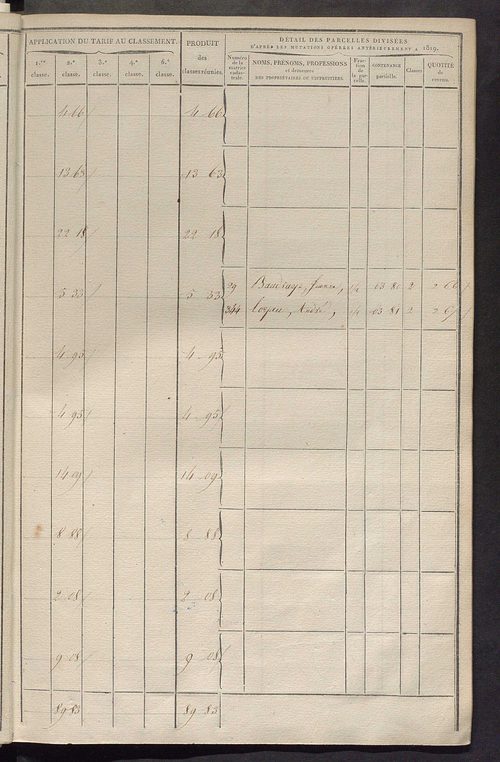 APPLICATION DU TARIF AU CLASSEMENT.
1.re classe. 2.e classe. 3.e classe. 4.e classe. 6.e classe.
PRODUIT des classes réunies.
DÉTAIL DES PARCELLES DIVISÉES
D'APRÈS LES MUTATIONS OPÉRÉES ANTÉRIEUREMENT A 1819.
Numéro de la matrice cadastrale.
NOMS, PRÉNOMS, PROFESSIONS
et demeures
DES PROPRIÉTAIRES OU USUFRUITIERS.
Fraction de la parcelle.
CONTENANCE partielle.
Classes
QUOTITÉ de revenu.
4 66 4 66
13 63 13 63
22 18 22 18
29 2 2 66
5 33 5 33
344 André, 03 81 2 2 67
4 95 4 95
4 95 4 95
14 09 14 09
8 88 8 88
2 08 2 08
9 08 9 08
89 83 89 83